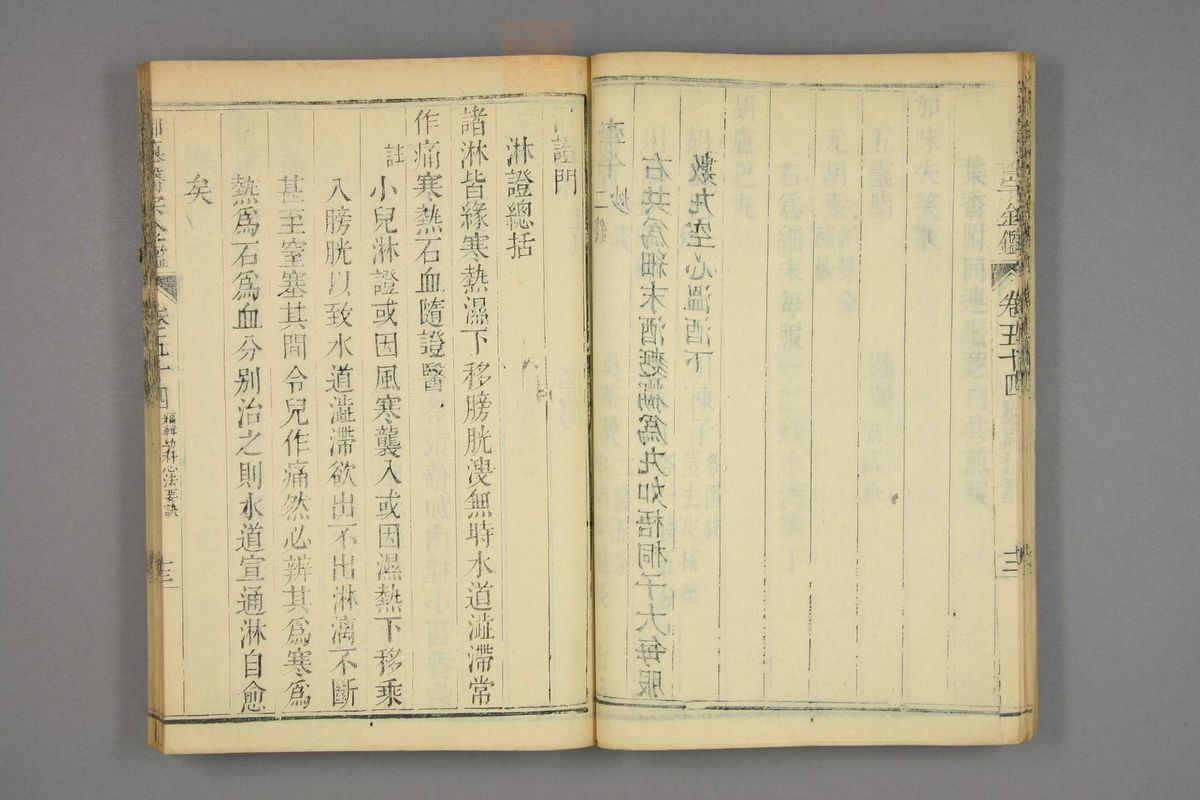 卷五十四
十二
牽牛炒二錢
右共爲細末酒麵糊爲丸如梧桐子大每服
數丸空心溫酒下
證門
淋證總括
諸淋皆緣寒熱濕下移膀胱溲無時水道澁滯常
作痛寒熱石血隨證醫
註
小兒淋證或因風寒襲入或因濕熱下移乘
入膀胱以致水道澁滯欲出不出淋漓不斷
甚至窒塞其間令兒作痛然必辨其爲寒爲
熱爲石爲血分別治之則水道宣通淋自愈
矣
醫宗金鑑
卷五十四
編輯幼科心法要訣
十三